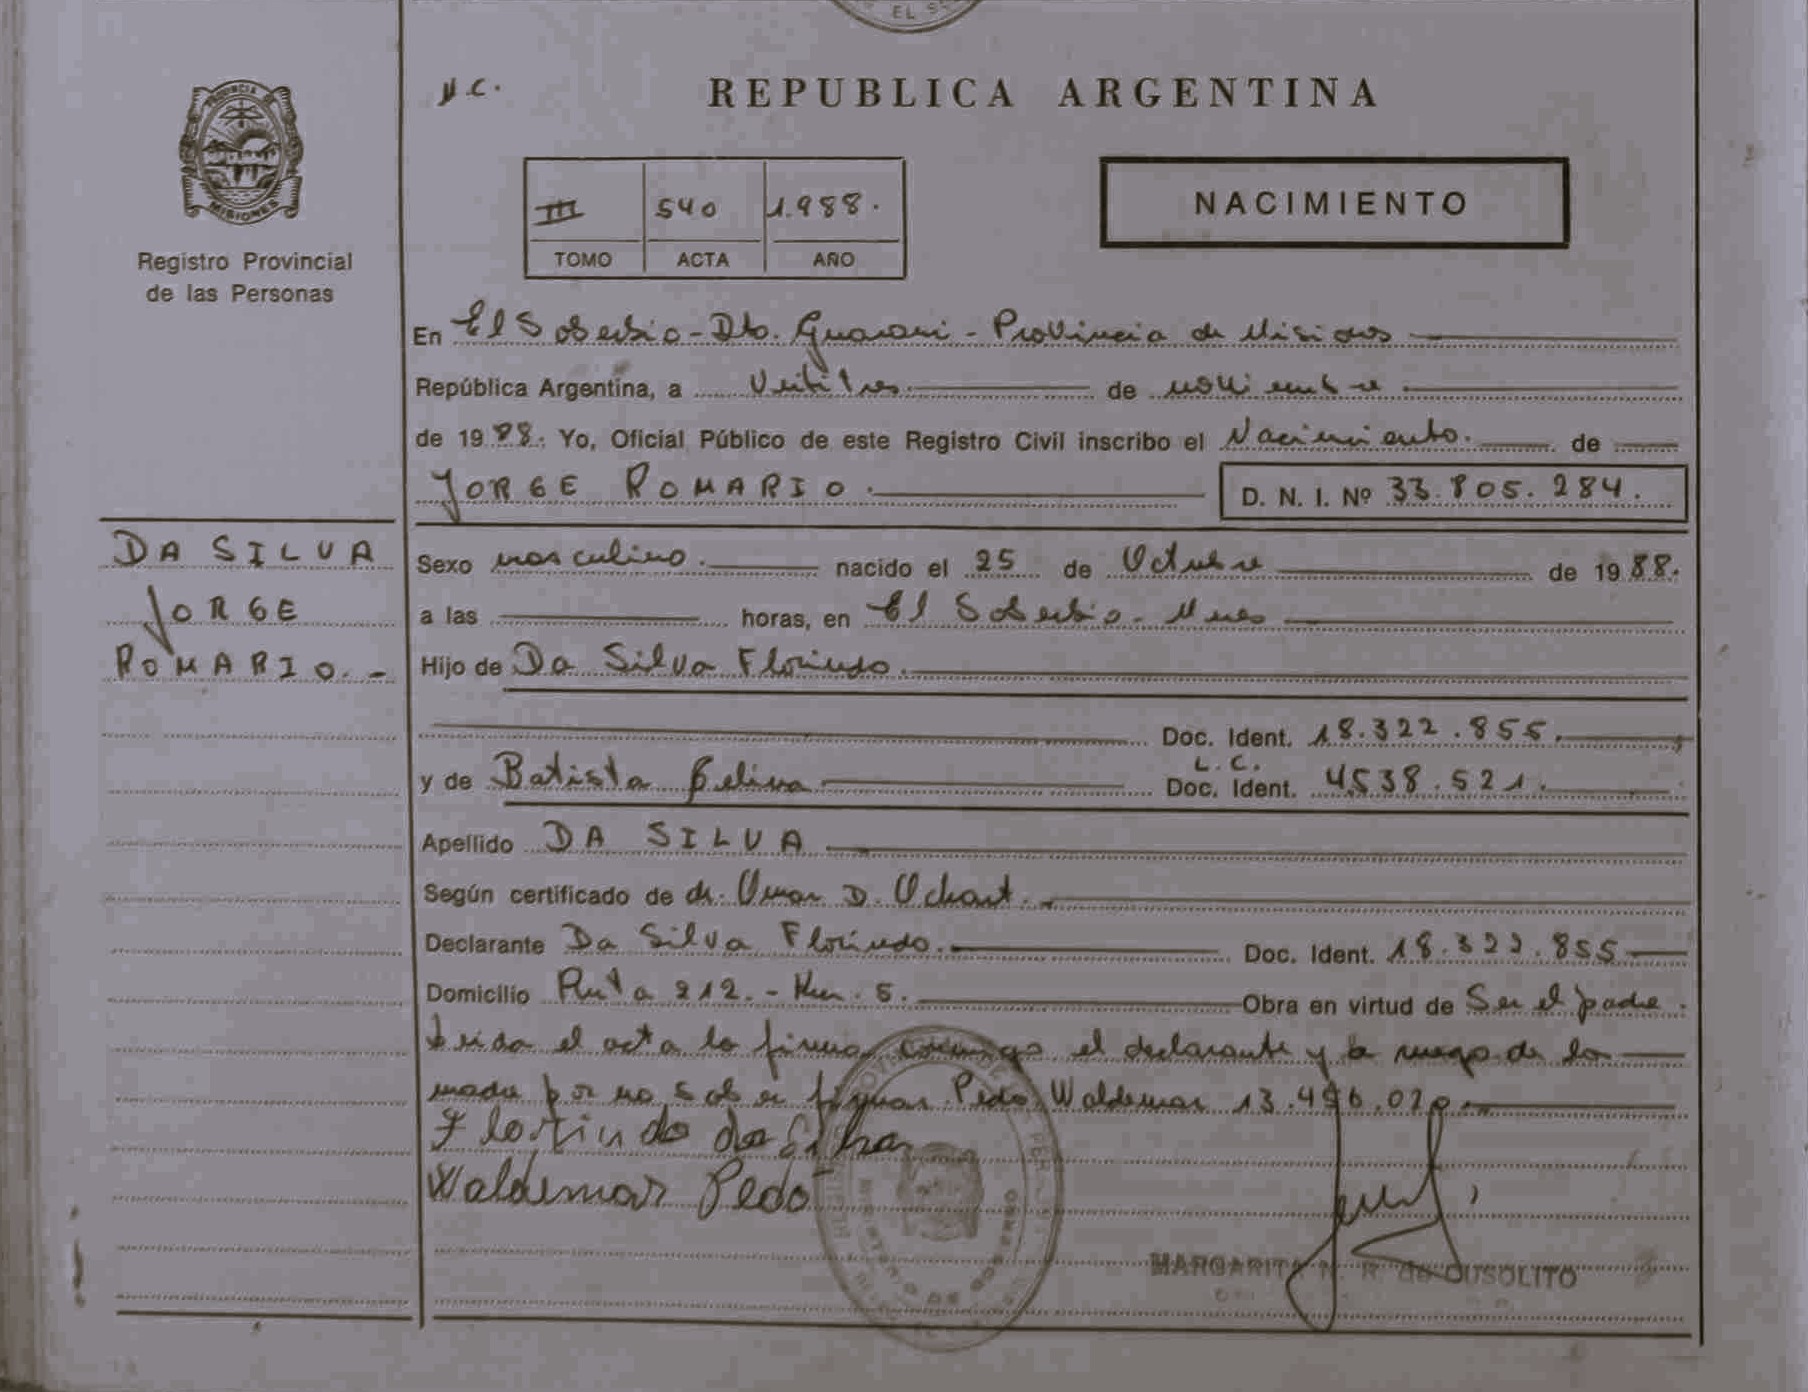 EL SO
PROVINCIA DE
MISIONES
Registro Provincial
de las Personas
N.C.
REPUBLICA ARGENTINA
III 540 1.988.
TOMO ACTA AÑO
NACIMIENTO
En El Soberbio - Dto. Guarani - Provincia de Misiones
República Argentina, a Veititres de noviembre
de 1988. Yo, Oficial Público de este Registro Civil inscribo el Nacimiento. de
JORGE ROMARIO. D. N. I. Nº 33.805.284.
DA SILVA
JORGE
ROMARIO. -
Sexo masculino. nacido el 25 de Octubre de 1988.
a las horas, en El Soberbio - Mnes
Hijo de Da Silva Florindo.
Doc. Ident. 18.322.855.
L.C.
y de Batista Celina Doc. Ident. 4538.521.
Apellido DA SILVA
Según certificado de dr. Omar D. Uchart.
Declarante Da Silva Florindo. Doc. Ident. 18.322.855
Domicilio Ruta 212. - Km. 5. Obra en virtud de Ser el padre.
Leida el acta la firma conmigo el declarante y a ruego de la
madre por no saber firmar. Pedo Waldemar 13.496.070.
Florindo da Silva
Waldemar Pedo
MINISTERIO DE GOBIERNO
MARGARITA N. R. de CUSOLITO